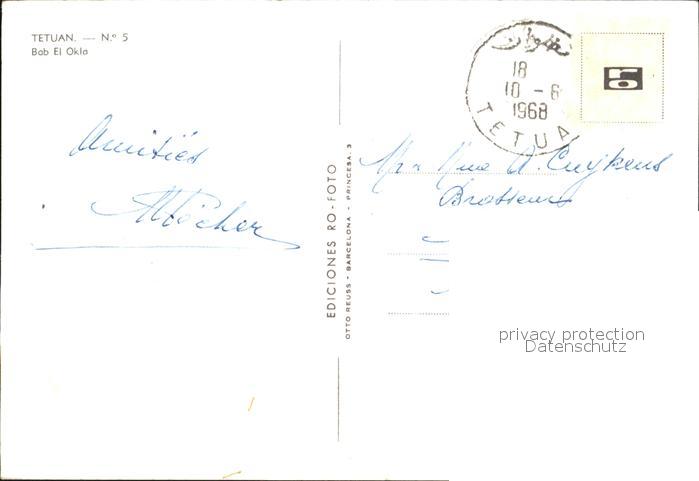 TETUAN. — N.º 5
Bab El Okla
تطوان
18
10 - 6
1968
TETUA
Amitiés
Mr & Mme A. Cuykens
Brasseurs
EDICIONES RO-FOTO
OTTO REUSS - BARCELONA - PRINCESA, 3
privacy protection
Datenschutz